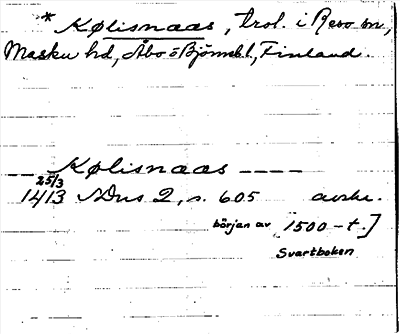 * Kølisnaas, trol. i Reso sn,
Masku hd, Åbo o Björnebl, Finland.
— — Kølisnaas — — — —
25/3
1413 NDns 2, s. 605 avskr.
början av 1500-t.]
Svartboken